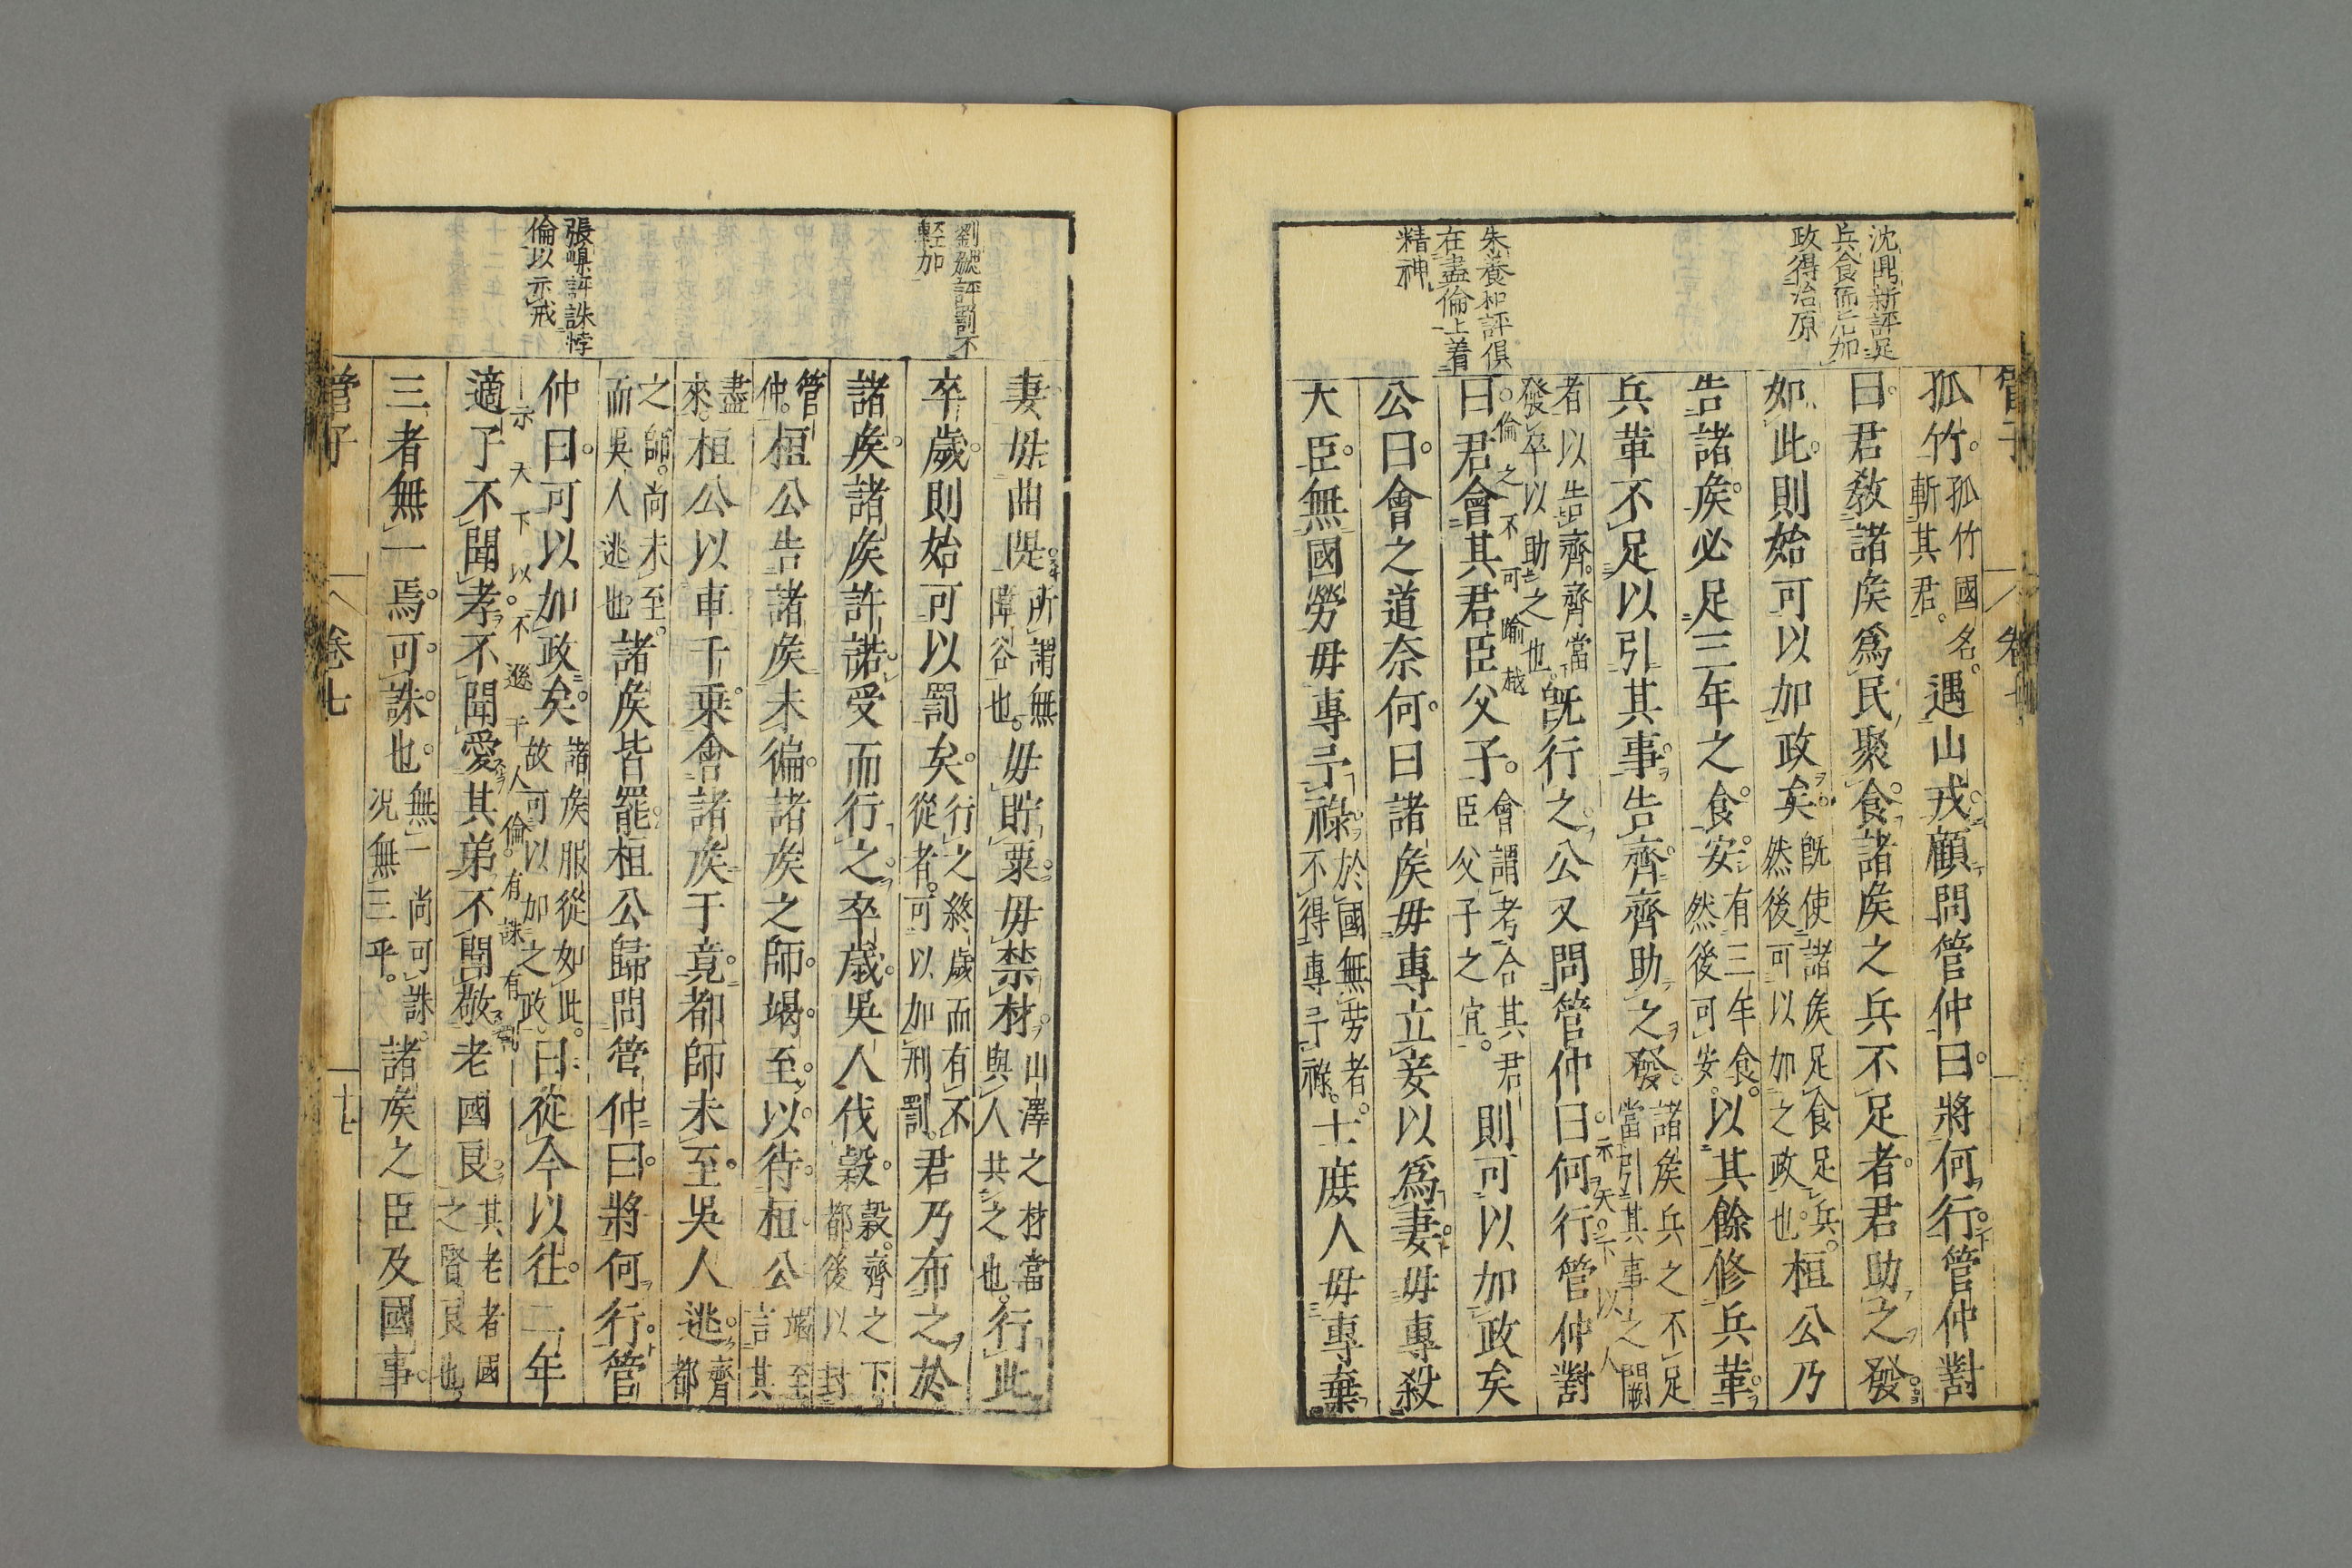 沈鼎新評足
兵食而后加
政得治原
朱養和評俱
在盡倫上着
精神
管子
卷七
孤竹孤竹國名斬其君遇山戎顧問管仲曰將何行管仲對
曰君教諸侯爲民聚食諸侯之兵不足者君助之發
如此則始可以加政矣既使諸侯足食足兵然後可以加之政也桓公乃
告諸侯必足三年之食安有三年食然後可安以其餘修兵革
兵革不足以引其事告齊齊助之發諸侯兵之不足當引其事之闕
示天下以人
者以告齊齊當發卒以助之也既行之公又問管仲曰何行管仲對
倫之不可踰越
曰君會其君臣父子會謂考合其君臣父子之宜則可以加政矣
公曰會之道奈何曰諸侯毋專立妾以爲妻毋專殺
大臣無國勞毋專予祿於國無勞者不得專予祿士庶人毋專棄
劉勰評罰不
輕加
張嵲評誅悖
倫以示戒
妻毋曲隄所謂無障谷也毋貯粟毋禁材山澤之材當與人共之也行此
卒歲則始可以罰矣行之終歲而有不從者可以加刑罰君乃布之於
諸侯諸侯許諾受而行之卒歲吳人伐穀穀齊之下都後以封
管仲桓公告諸侯未徧諸侯之師竭至以待桓公竭至言其
盡來桓公以車千乘會諸侯于竟都師未至吳人逃齊都
之師尚未至而吳人逃也諸侯皆罷桓公歸問管仲曰將何行管
仲曰可以加政矣諸侯服從如此故可以加之政曰從今以往二年
示天下以不遜于人倫有誅有
適子不聞孝不聞愛其弟不聞敬老國良其老者國之賢良也
三者無一焉可誅也無一尚可誅況無三乎諸侯之臣及國事
管子
卷七
十七